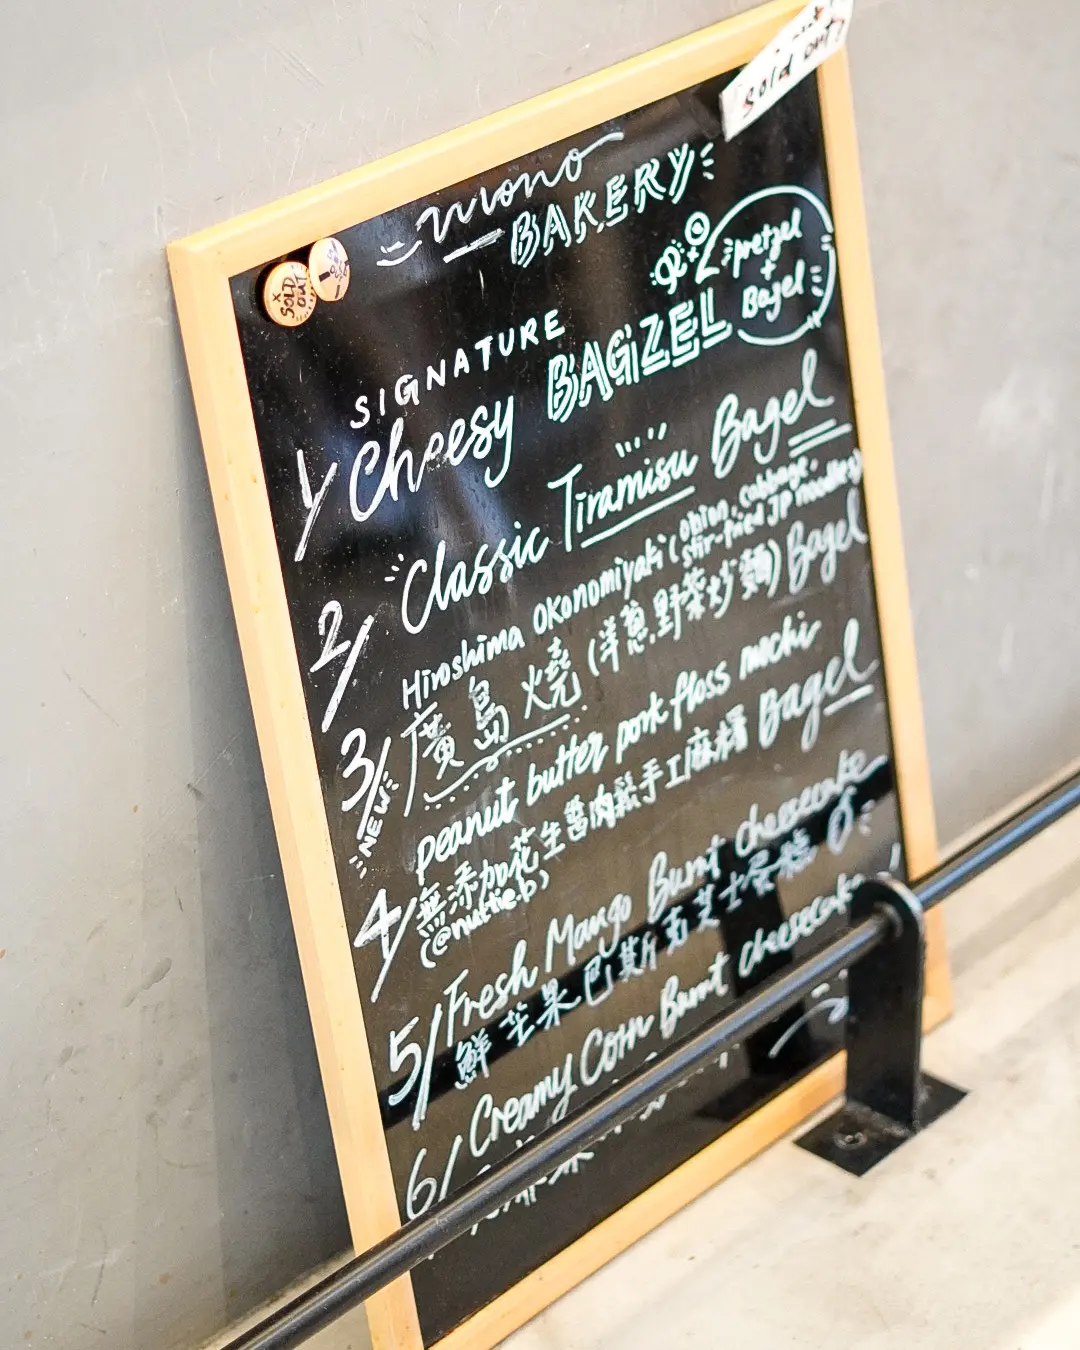 Sold out?
mono
BAKERY
SOLD OUT
SIGNATURE
pretzel
+
Bagel
1/ Cheesy BAGZEL
2/ Classic Tiramisu Bagel
3/ Hiroshima Okonomiyaki (onion, cabbage,
stir-fried JP noodles)
NEW
廣島燒 (洋蔥,野菜炒麵) Bagel
4/ peanut butter pork floss mochi
無添加花生醬肉鬆手工麻糬 Bagel
(@nuttie.b)
5/ Fresh Mango Burnt cheesecake
鮮芒果巴斯克芝士蛋糕
6/ Creamy Corn Burnt cheesecake